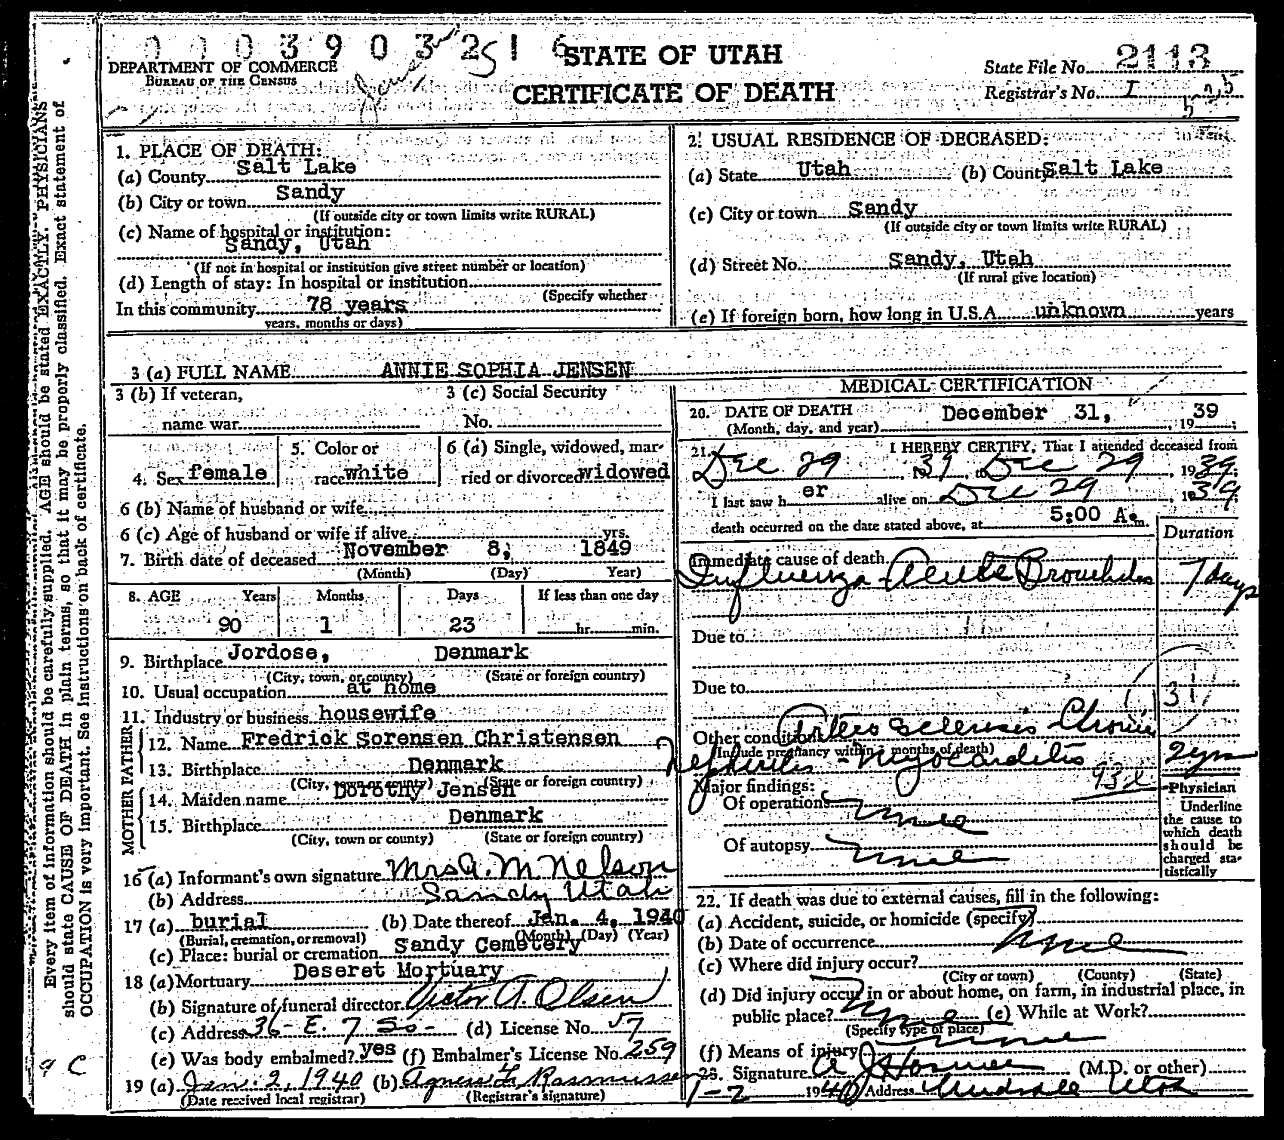 0003903251 6
STATE OF UTAH
CERTIFICATE OF DEATH
DEPARTMENT OF COMMERCE
BUREAU OF THE CENSUS
State File No. 2113
Registrar's No. I
525
Every item of information should be carefully supplied. AGE should be stated EXACTLY. PHYSICIANS
should state CAUSE OF DEATH in plain terms, so that it may be properly classified. Exact statement of
OCCUPATION is very important. See instructions on back of certificate.
1. PLACE OF DEATH:
(a) County Salt Lake
(b) City or town Sandy
(If outside city or town limits write RURAL)
(c) Name of hospital or institution:
Sandy, Utah
(If not in hospital or institution give street number or location)
(d) Length of stay: In hospital or institution
(Specify whether
In this community 78 years
years, months or days)
2. USUAL RESIDENCE OF DECEASED:
(a) State Utah (b) County Salt Lake
(c) City or town Sandy
(If outside city or town limits write RURAL)
(d) Street No. Sandy, Utah
(If rural give location)
(e) If foreign born, how long in U.S.A. unknown years
3 (a) FULL NAME ANNIE SOPHIA JENSEN
3 (b) If veteran,
name war
3 (c) Social Security
No.
4. Sex female
5. Color or
race white
6 (a) Single, widowed, mar-
ried or divorced widowed
6 (b) Name of husband or wife
6 (c) Age of husband or wife if alive yrs.
7. Birth date of deceased November 8, 1849
(Month) (Day) Year)
8. AGE Years Months Days If less than one day
90 1 23 hr. min.
9. Birthplace Jordose, Denmark
(City, town, or county) (State or foreign country)
10. Usual occupation at home
11. Industry or business housewife
FATHER
12. Name Fredrick Sorensen Christensen
13. Birthplace Denmark
(City, town or county) (State or foreign country)
MOTHER
14. Maiden name Dorothy Jensen
15. Birthplace Denmark
(City, town or county) (State or foreign country)
16 (a) Informant's own signature Mrs A. M Nelson
(b) Address Sandy Utah
17 (a) burial (b) Date thereof Jan. 4, 1940
(Burial, cremation, or removal) (Month) (Day) (Year)
(c) Place: burial or cremation Sandy Cemetery
18 (a) Mortuary Deseret Mortuary
(b) Signature of funeral director Victor A. Olsen
(c) Address 36-E. 7 So- (d) License No. 57
(e) Was body embalmed? yes (f) Embalmer's License No. 259
19 (a) Jan. 2, 1940 (b) Agness L. Rasmussen
(Date received local registrar) (Registrar's signature)
9 C
MEDICAL CERTIFICATION
20. DATE OF DEATH December 31, 1939
(Month, day, and year)
21. I HEREBY CERTIFY, That I attended deceased from
Dec 29, 1939, to Dec 29, 1939;
I last saw her alive on Dec 29, 1939
death occurred on the date stated above, at 5:00 A.m.
Duration
Immediate cause of death
Influenza - Acute Bronchitis 7 days
Due to
Due to
31
Other conditions Arterio Sclerosis Chronic
(Include pregnancy within months of death)
Nephritis - Myocarditis 2 yrs
Major findings: 93d
Of operations none
Of autopsy none
Physician
Underline
the cause to
which death
should be
charged sta-
tistically
22. If death was due to external causes, fill in the following:
(a) Accident, suicide, or homicide (specify)
(b) Date of occurrence none
(c) Where did injury occur?
(City or town) (County) (State)
(d) Did injury occur in or about home, on farm, in industrial place, in
public place? none (e) While at Work?
(Specify type of place)
(f) Means of injury none
23. Signature (M.D. or other)
1-2 1940 Address Midvale Utah